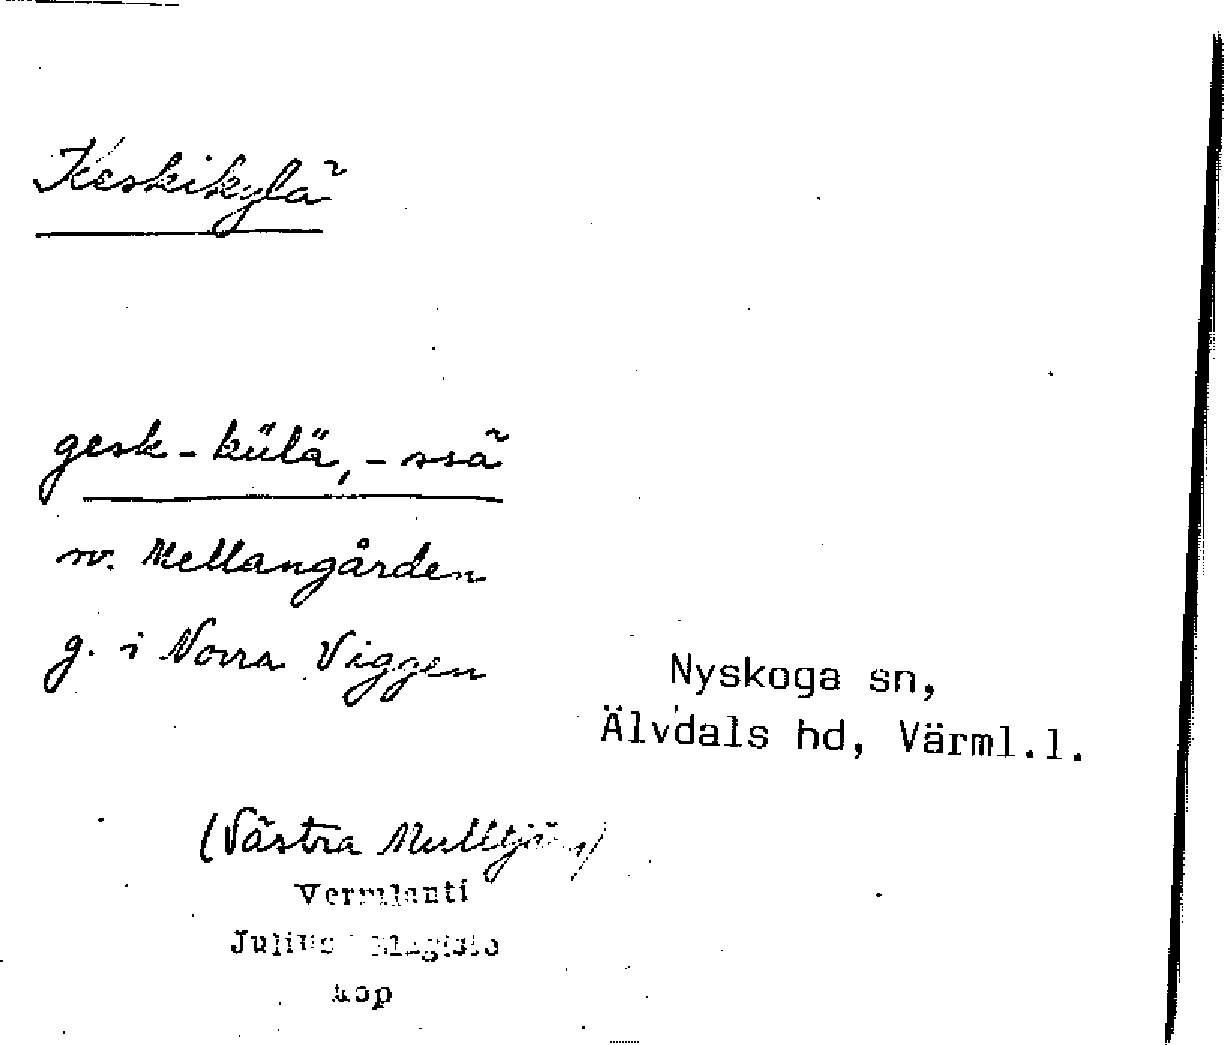 Keskikylä
gesk-külä, -ssä
sv. Mellangården
g. i Norra Viggen
Nyskoga sn,
Älvdals hd, Värml.l.
(Västra Mulltjärn)
Vermlanti
Julius Mägiste
kop